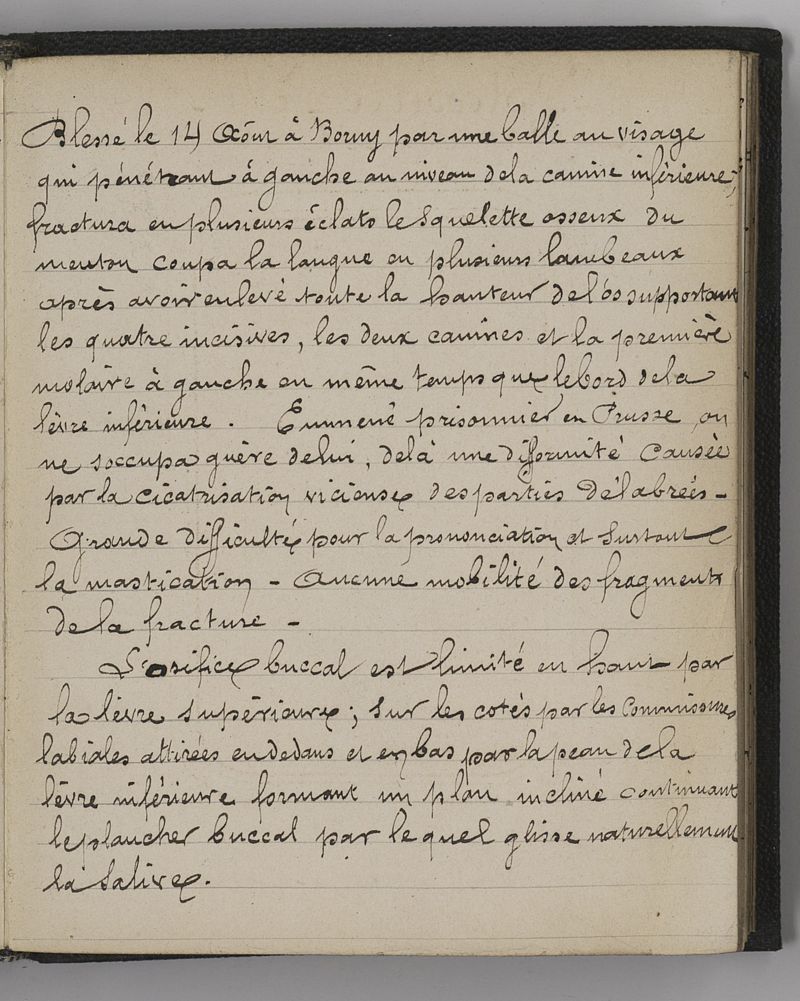 Blessé le 14 Août à Borny par une balle au visage
qui pénétrant à gauche au niveau de la canine inférieure,
fractura en plusieurs éclats le squelette osseux du
menton coupa la langue en plusieurs lambeaux
après avoir enlevé toute la hauteur de l'os supportant
les quatre incisives, les deux canines et la première
molaire à gauche en même temps que le bord de la
lèvre inférieure. Emmené prisonnier en Prusse, on
ne s'occupa guère de lui, de là une difformité causée
par la cicatrisation vicieuse des parties délabrées -
Grande difficulté pour la prononciation et surtout
la mastication - Aucune mobilité des fragments
de la fracture -
L'orifice buccal est limité en haut par
la lèvre supérieure ; sur les cotés par les Commissures
labiales attirées en dedans et en bas par la peau de la
lèvre inférieure formant un plan incliné continuant
le plancher buccal par lequel glisse naturellement
la salive.